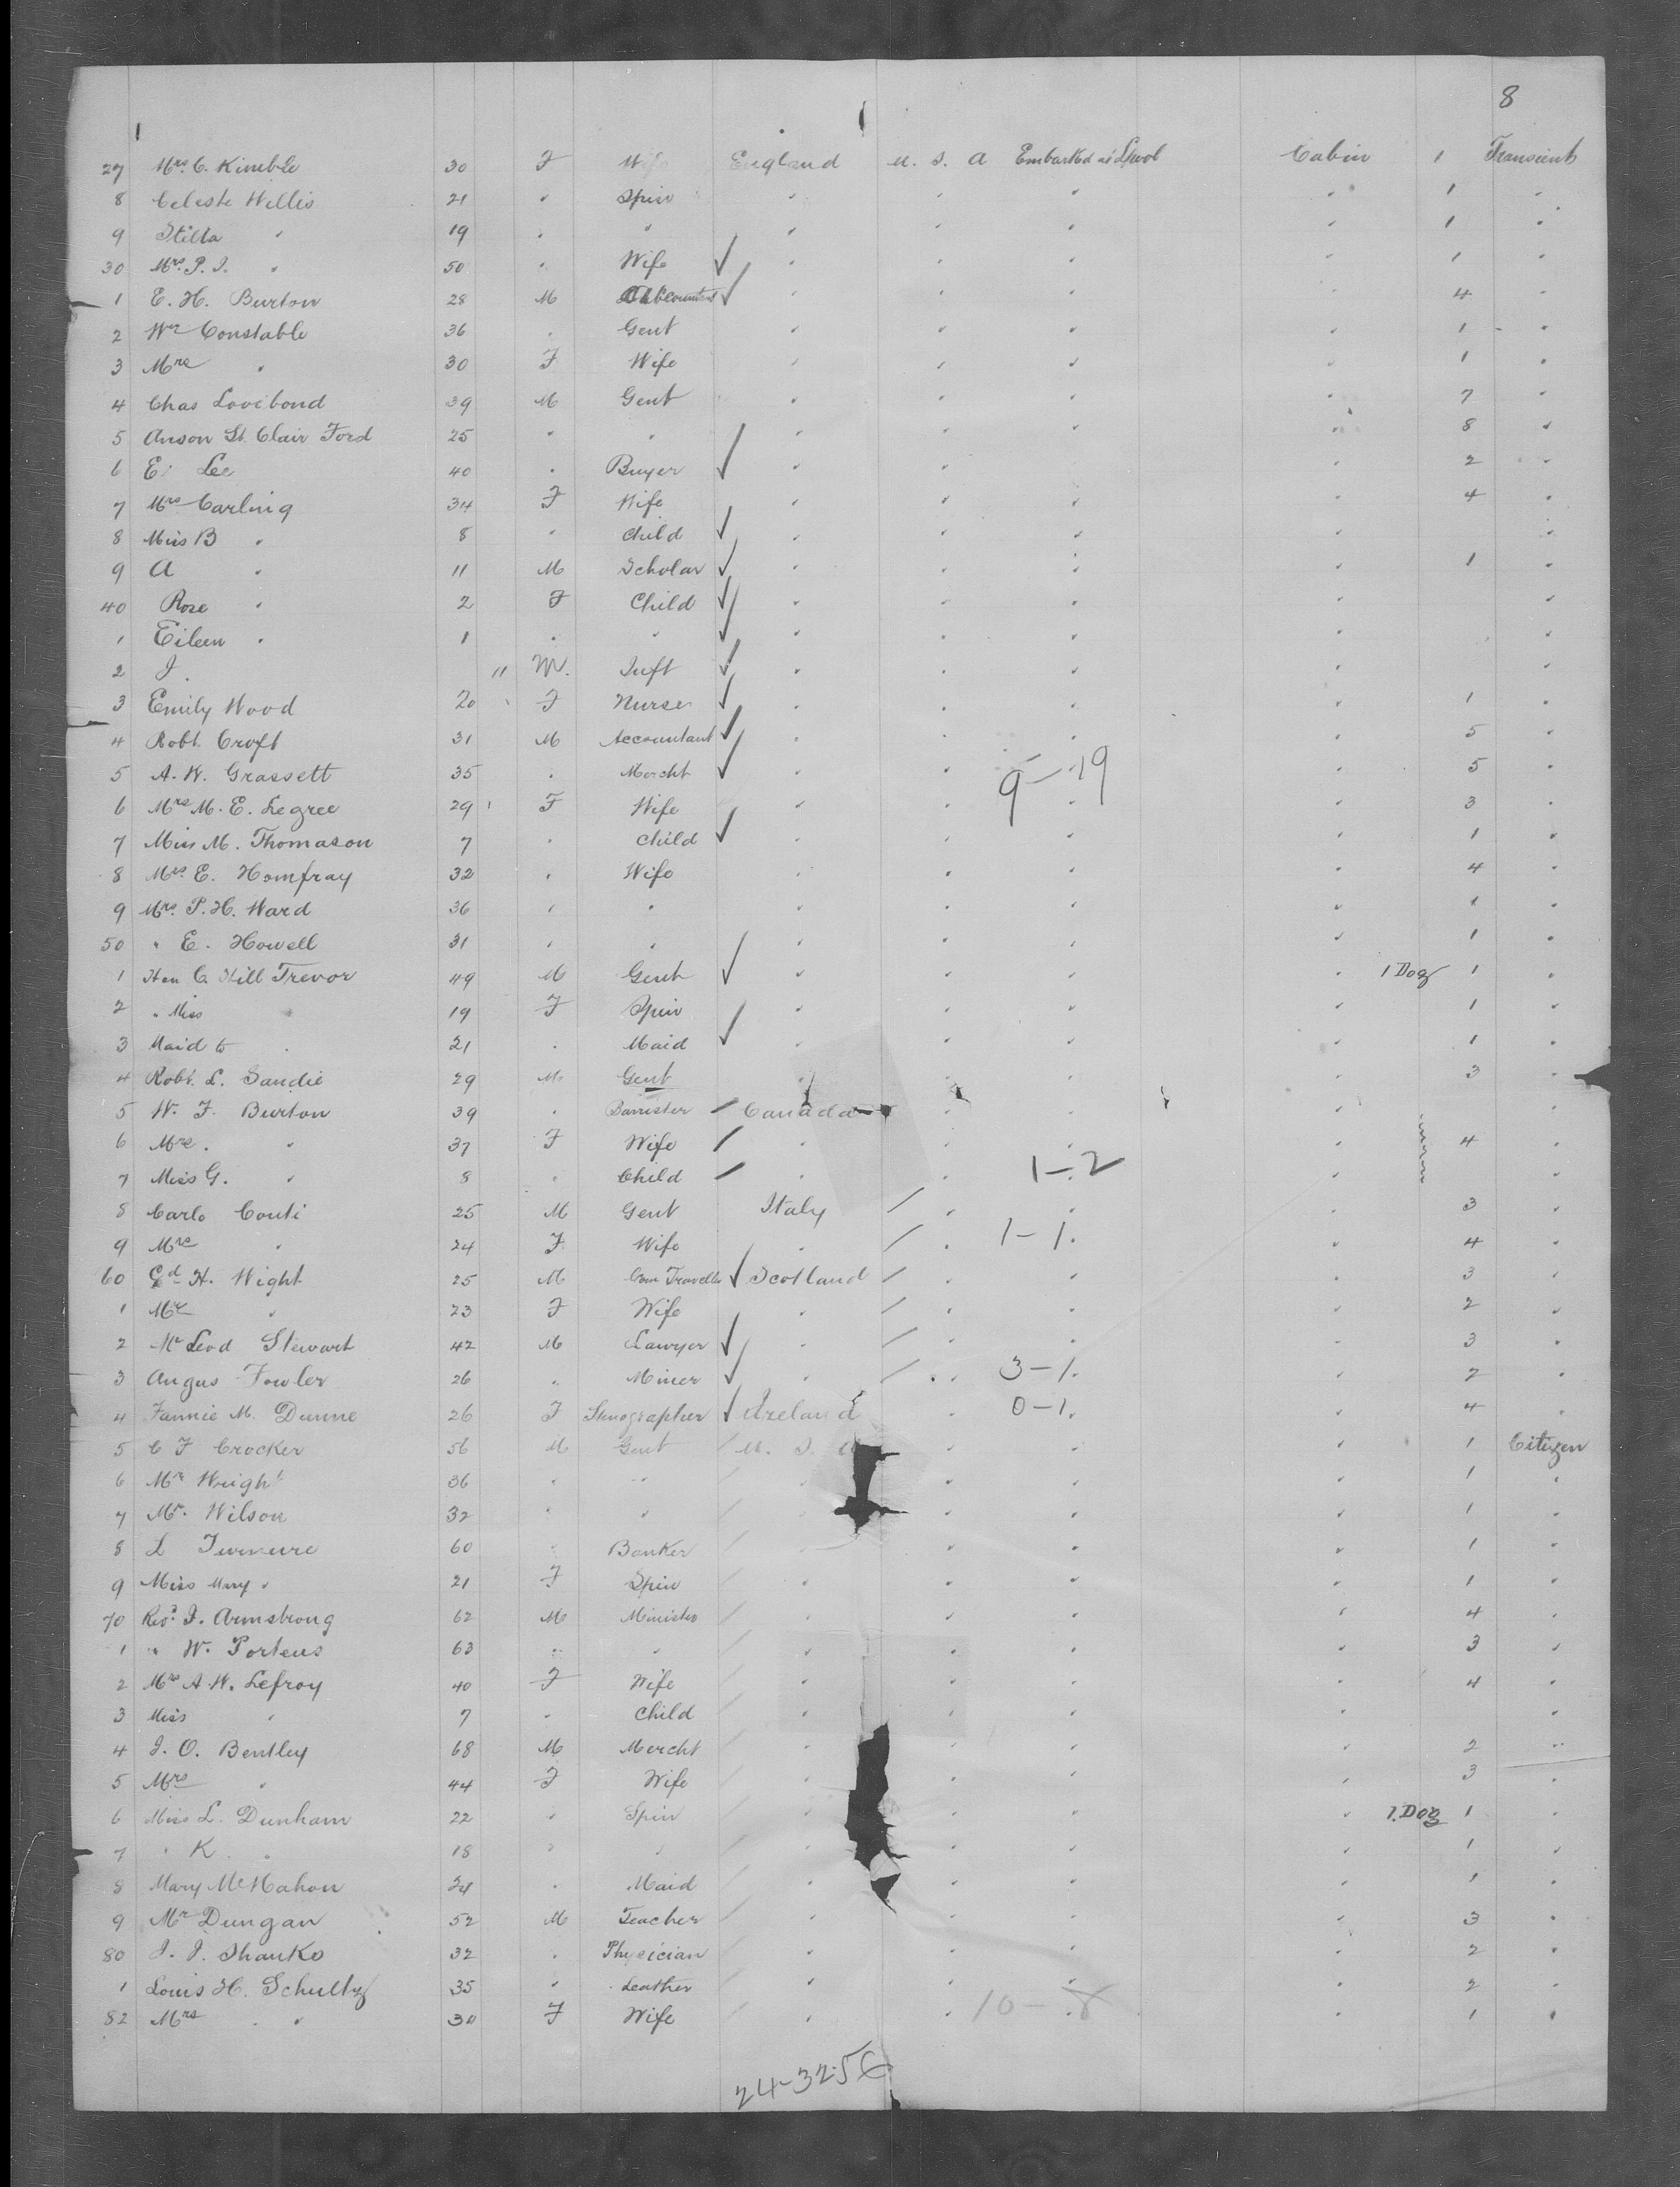 8
1
27 Mrs C. Kimble 30 F Wife England U. S. A Embarked at L'pool Cabin 1 Transient
8 Celeste Willis 21 " Spin " " " " 1 "
9 Stilla " 19 " " " " " " 1 "
30 Mrs P. J. " 50 " Wife " " " " 1 "
1 E. H. Burton 28 M Accountant " " " " 4 "
2 Wm Constable 36 " Gent " " " " 1 "
3 Mrs " 30 F Wife " " " " 1 "
4 Chas Lovibond 39 M Gent " " " " 7 "
5 Anson St. Clair Ford 25 " " " " " " 8 "
6 E. Lee 40 " Buyer " " " 2 "
7 Mrs Carling 34 F Wife " " " " 4 "
8 Miss B " 8 " Child " " " " "
9 A " 11 M Scholar " " " " 1 "
40 Rose " 2 F Child " " " " "
1 Eileen " 1 " " " " " " "
2 J. 11 M. Inft " " " " "
3 Emily Wood 20 F Nurse " " " " 1 "
4 Robt. Croft 31 M Accountant " " " " 5 "
5 A. W. Grassett 35 " Mercht " " 9-19 " 5 "
6 Mrs M. E. Legree 29 F Wife " " " " 3 "
7 Miss M. Thomason 7 " Child " " " " 1 "
8 Mrs E. Homfray 32 " Wife " " " " 4 "
9 Mrs P. H. Ward 36 " " " " " " 1 "
50 " E. Howell 31 " " " " " " 1 "
1 Hon C. Hill Trevor 49 M Gent " " " " 1 Dog 1 "
2 " Miss " 19 F Spin " " " " 1 "
3 Maid to " 21 " Maid " " " " 1 "
4 Robt. L. Sandie 29 M Gent " " " " 3 "
5 W. F. Burton 39 " Barrister Canada " " " "
6 Mrs. " 37 F Wife " " " " 4 "
7 Miss G. " 8 " Child " " 1-2 " "
8 Carlo Conti 25 M Gent Italy " " " 3 "
9 Mrs " 24 F Wife " " 1-1. " 4 "
60 Gd H. Wight 25 M Com Traveller Scotland " " " 3 "
1 Mrs " 23 F Wife " " " 2 "
2 McLeod Stewart 42 M Lawyer " " " " 3 "
3 Angus Fowler 26 " Miner " " 3-1. " 2 "
4 Fannie M. Dunne 26 F Stenographer Ireland " 0-1. " 4 "
5 C F Crocker 56 M Gent U. S. A " " " 1 Citizen
6 Mr Wright 36 " " " " " " 1 "
7 Mr. Wilson 32 " " " " " " 1 "
8 L Turnure 60 " Banker " " " " 1 "
9 Miss Mary " 21 F Spin " " " " 1 "
70 Revd J. Armstrong 62 M Minister " " " " 4 "
1 " W. Porteus 63 " " " " " " 3 "
2 Mrs A. W. Lefroy 40 F Wife " " " " 4 "
3 Miss " 7 " Child " " " " "
4 J. O. Bentley 68 M Mercht " " " " 2 "
5 Mrs " 44 F Wife " " " " 3 "
6 Miss L. Dunham 22 " Spin " " " " 1. Dog 1 "
7 " K. " 18 " " " " " " 1 "
8 Mary McMahon 24 " Maid " " " " 1 "
9 Mr Dungan 52 M Teacher " " " " 3 "
80 J. J. Shanks 32 " Physician " " " " 2 "
1 Louis H. Schultz 35 " Leather " " " " 2 "
82 Mrs " 30 F Wife " " 10-8 " 1 "
24-32 56